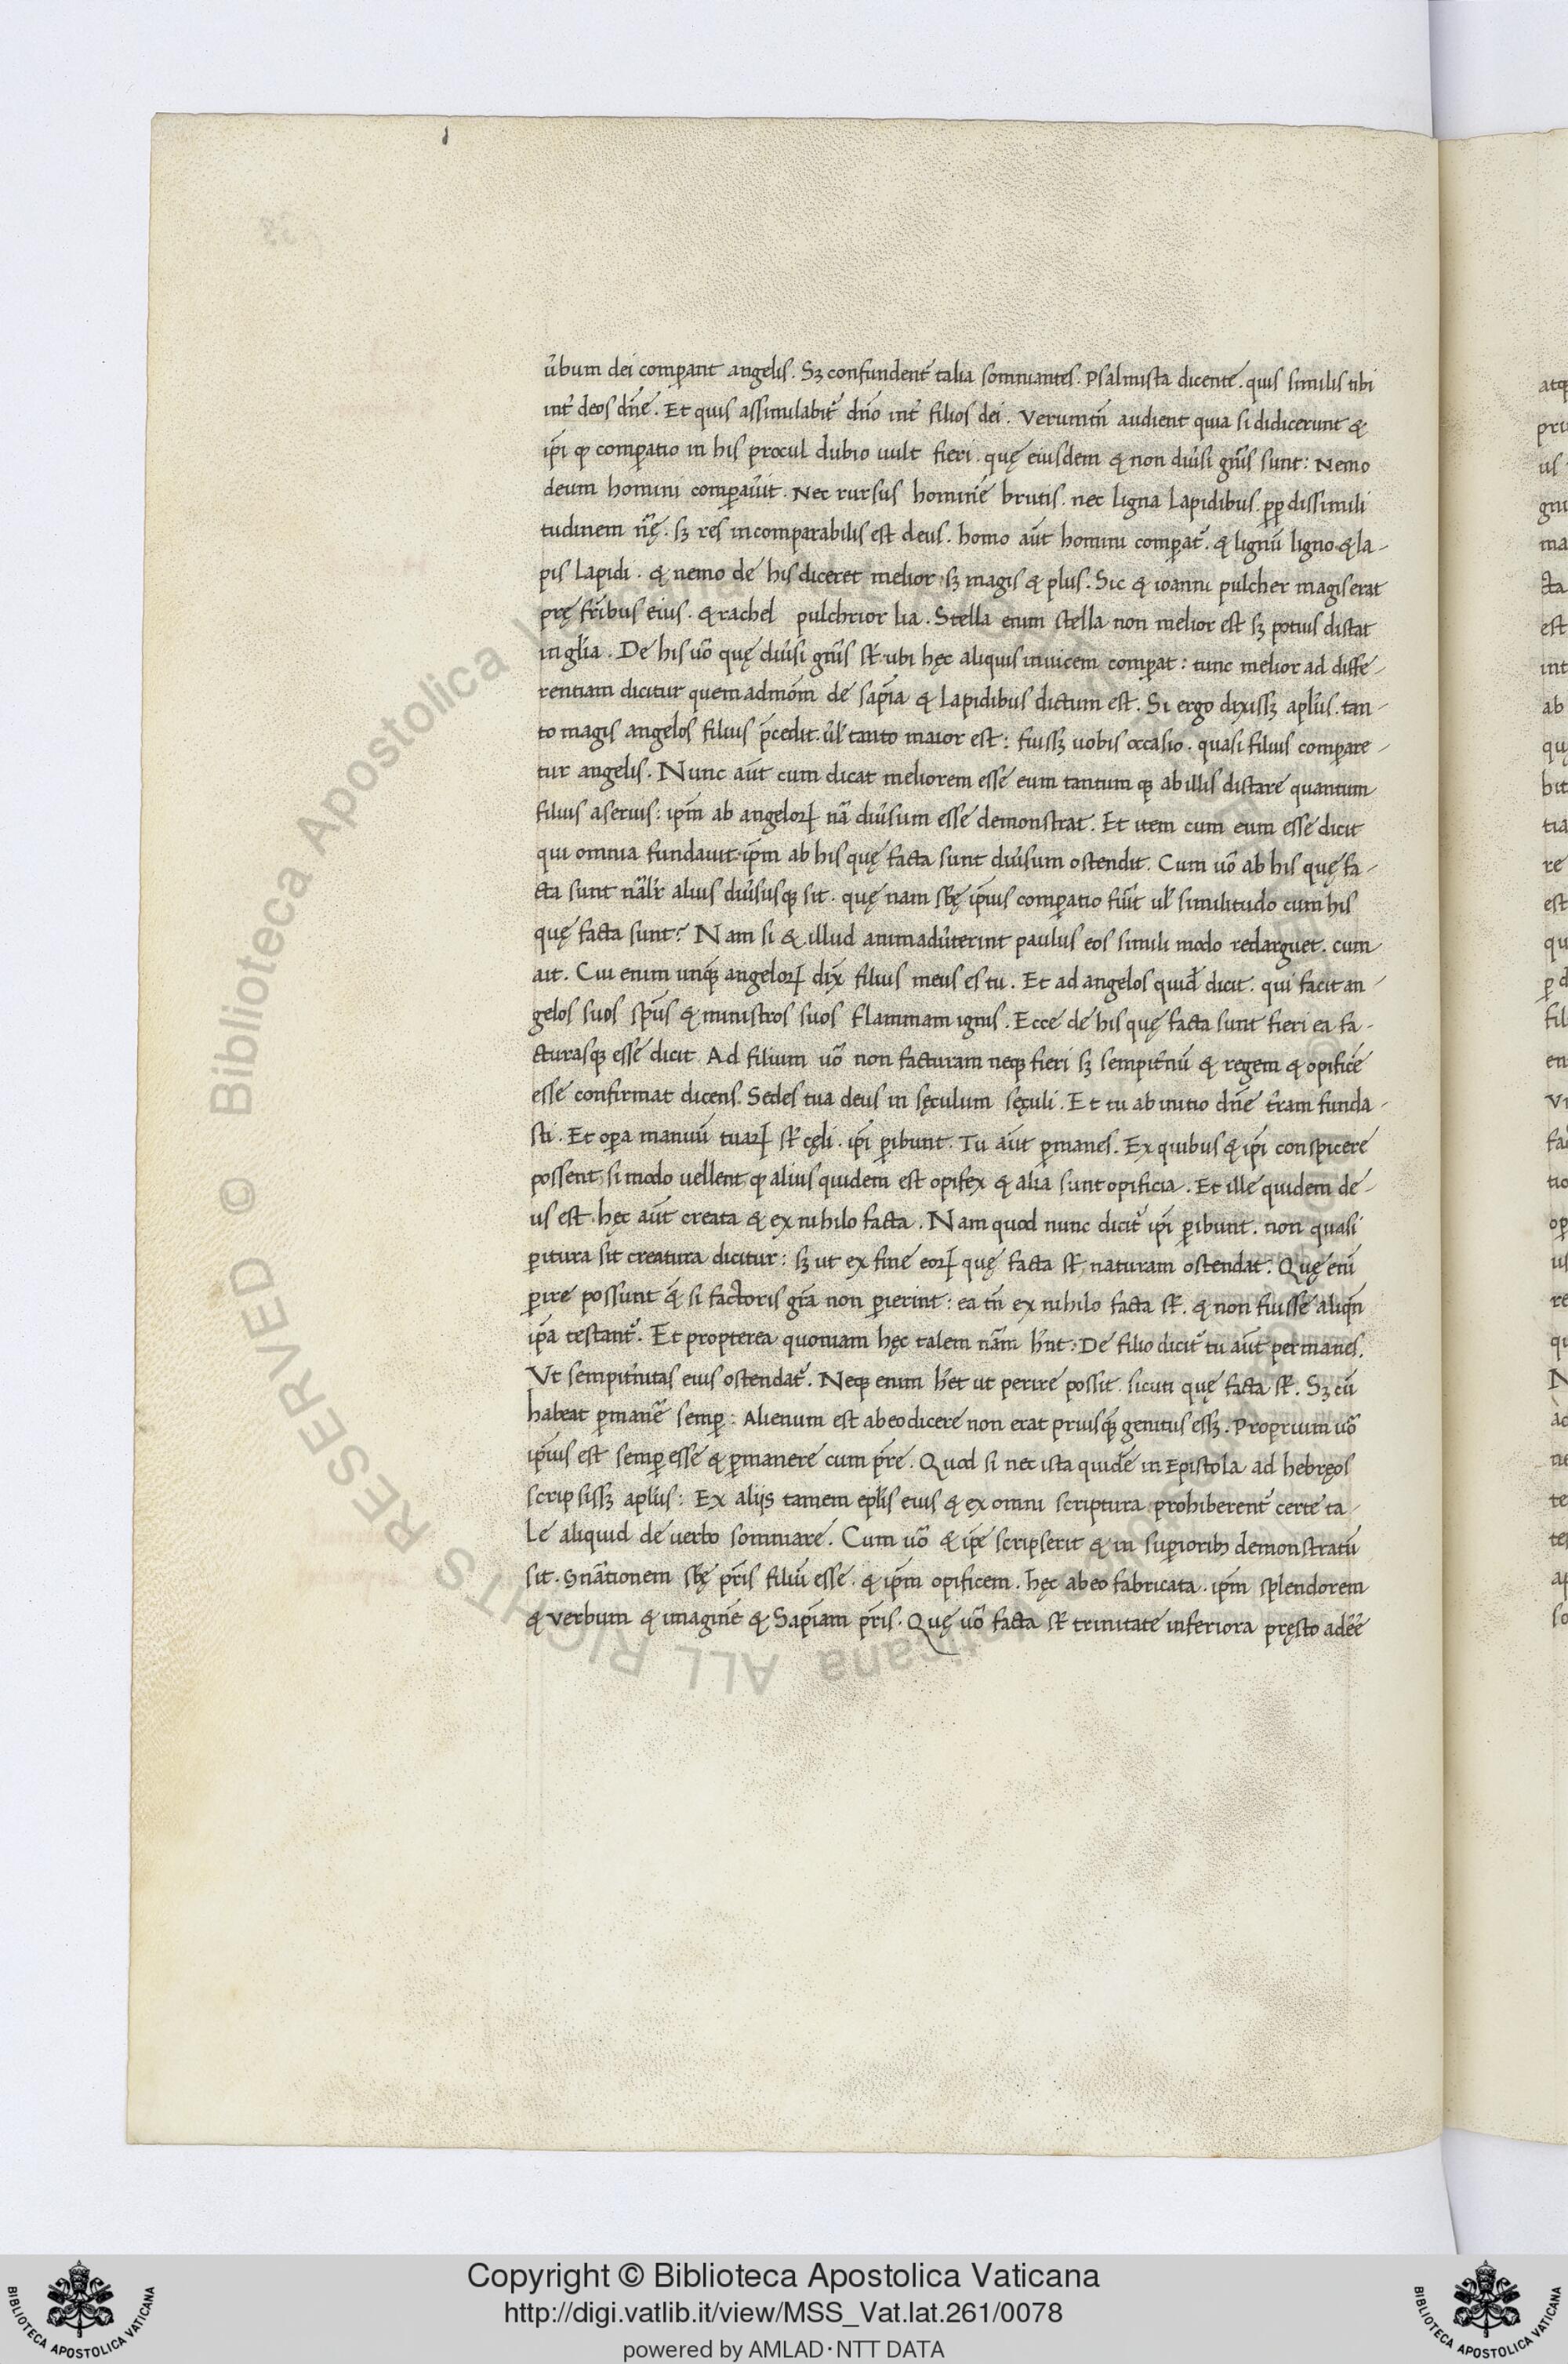 ũbum dei comparant angelis. Sꝫ confundent̃ talia somniantes. Psalmista dicente. quis similis tibi
int̃ deos dñe. Et quis assimilabit᷑ dño int̃ filios dei. Verumtñ audient quia si didicerunt &
ip̃i ꝙ compatio in his procul dubio uult fieri. quę eiusdem & non diũsi gñis sunt: Nemo
deum homini compaũit. Nec rursus hominẽ brutis. nec ligna lapidibus. ꝓp dissimili
tudinem nr̃ę. sꝫ res incomparabilis est deus. homo aũt homini compat᷑. & lignũ ligno & la-
pis lapidi. & nemo de his diceret melior sꝫ magis & plus. Sic & ioanni pulcher magis erat
prę fr̃ibus eius. & rachel pulchrior lia. Stella enim stella non melior est sꝫ potius distat
in gl̃ia. De his uõ quę diũsi gñis st̃. ubi hęc aliquis inuicem compat: tunc melior ad diffe-
rentiam dicitur quemadmõm de sap̃ia & lapidibus dictum est. Si ergo dixissꝫ apl̃us. tan-
to magis angelos filius p̃cedit. ul̃ tanto maior est: fuissꝫ uobis occasio. quasi filius compare-
tur angelis. Nunc aũt cum dicat meliorem esse eum tantumqꝫ ab illis distare quantum
filius a seruis: ip̃m ab angeloꝝ nã diũsum esse demonstrat. Et item cum eum esse dicit
qui omnia fundauit. ip̃m ab his quę facta sunt diũsum ostendit. Cum uõ ab his quę fa-
cta sunt nãlr̃ alius diũsusqꝫ sit. quę nam sb̃ę ip̃ius compatio fũit ul̃ similitudo cum his
quę facta sunt? Nam si & illud animadũterint paulus eos simili modo redarguet. cum
ait. Cui enim unqꝫ angeloꝝ dix̃ filius meus es tu. Et ad angelos quid̃ dicit. qui facit an-
gelos suos sp̃us & ministros suos flammam ignis. Ecce de his quę facta sunt fieri ea fa-
cturasqꝫ esse dicit. Ad filium uõ non facturam neqꝫ fieri sꝫ sempit̃nũ & regem & opificẽ
esse confirmat dicens. Sedes tua deus in sęculum sęculi. Et tu ab initio dñe t̃ram funda-
sti. Et opa manuũ tuaꝝ st̃ cęli. ip̃i ꝑibunt. Tu aũt ꝑmanes. Ex quibus & ip̃i conspicere
possent, si modo uellent, ꝙ alius quidem est opifex & alia sunt opificia. Et ille quidem de-
us est. hęc aũt creata & ex nihilo facta. Nam quod nunc dicit᷑ ip̃i ꝑibunt. non quasi
ꝑitura sit creatura dicitur: sꝫ ut ex fine eoꝝ quę facta st̃ naturam ostendat. Quę enĩ
ꝑire possunt & si factoris grã non ꝑierint: ea tñ ex nihilo facta st̃. & non fuisse aliqñ
ip̃a testant᷑. Et propterea quoniam hęc talem nãm hñt: De filio dicit᷑ tu aũt permanes.
Ut sempit̃nitas eius ostendat᷑. Neqꝫ enim h̃et ut perire possit. sicuti quę facta st̃. Sꝫ cũ
habeat ꝑmanẽ semꝑ: Alienum est ab eo dicere non erat priusqꝫ genitus essꝫ. Proprium uõ
ip̃ius est semꝑ esse & ꝑmanere cum p̃re. Quod si nec ista quidẽ in Epistola ad hebręos
scripsissꝫ apl̃us: Ex alijs tamem epl̃is eius & ex omni scriptura prohiberent᷑ certe ta-
le aliquid de uerbo somniare. Cum uõ & ip̃e scripserit & in supioribꝫ demonstratũ
sit. gñationem sb̃ę pr̃is filiũ esse. & ip̃m opificem. hęc ab eo fabricata. ip̃m splendorem
& verbum & imaginẽ & Sap̃iam pr̃is. Quę uõ facta st̃ trinitate inferiora pręsto adẽe
atq
pri
us
gni
ma
cta
est
int
ab
qu
bit
tia
re
est
qu
fil
en
fa
tio
op
us
re
qu
ac
ne
te
ap
so
© Biblioteca Apostolica Vaticana ALL RIGHTS RESERVED
BIBLIOTECA APOSTOLICA VATICANA
Copyright © Biblioteca Apostolica Vaticana
http://digi.vatlib.it/view/MSS_Vat.lat.261/0078
powered by AMLAD·NTT DATA
BIBLIOTECA APOSTOLICA VATICANA